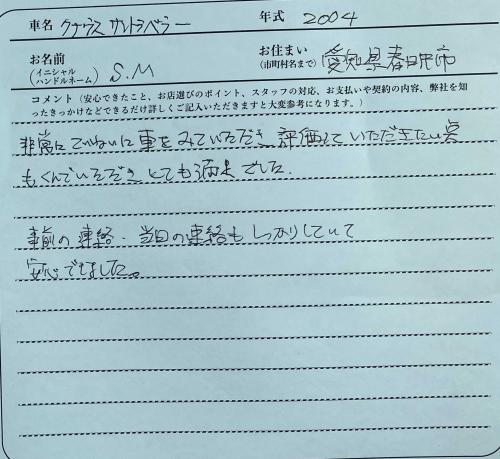 車名 クナウス サントラベラー 年式 2004
お名前 (イニシャル ハンドルネーム) S.M お住まい (市町村名まで) 愛知県春日井市
コメント（安心できたこと、お店選びのポイント、スタッフの対応、お支払いや契約の内容、弊社を知
ったきっかけなどできるだけ詳しくご記入いただきますと大変参考になります。）
非常にていねいに車をみていただき 評価して いただきたい点
もくんでいただき とても満足でした.
事前の連絡・当日の連絡も しっかりしていて
安心できました。